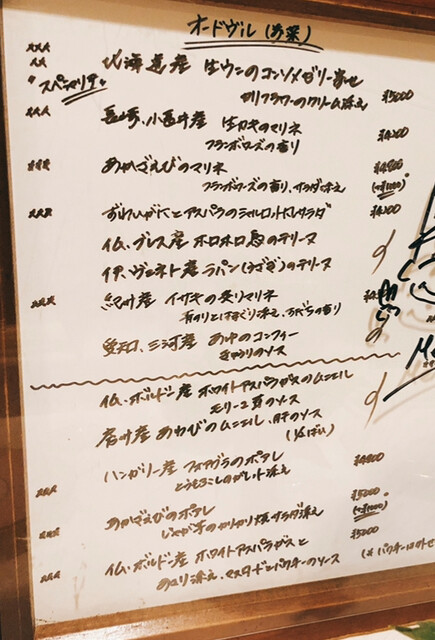 オードヴル（前菜）
北海道産 生ウニのコンソメゼリー寄せ
"スペシャリテ"
カリフラワーのクリーム添え ¥5000
長崎、小長井産 生カキのマリネ ¥4200
フランボワーズの香り
あかざえびのマリネ ¥4800
フランボワーズの香り、サラダ添え
ずわいがにとアスパラのシャルロット仕立サラダ ¥4200
仏、ブレス産 ホロホロ鳥のテリーヌ
伊、ヴェネト産 ラパン（うさぎ）のテリーヌ
紀州産 イサキの炙りマリネ
青のりとはまぐり添え、すだちの香り
愛知、三河産 あゆのコンフィー
きゅうりのソース
仏、ボルドー産 ホワイトアスパラガスのムニエル
モリーユ茸のソース
房州産 あわびのムニエル、肝のソース
（½ぱい）
ハンガリー産 フォアグラのポアレ ¥4800
とうもろこしのガレット添え
あかざえびのポアレ ¥5000
じゃが芋のカリカリ焼 サラダ添え (+¥1000)
仏、ボルドー産 ホワイトアスパラガスと ¥5000
のユリ添え、マスタードとパクチーのソース